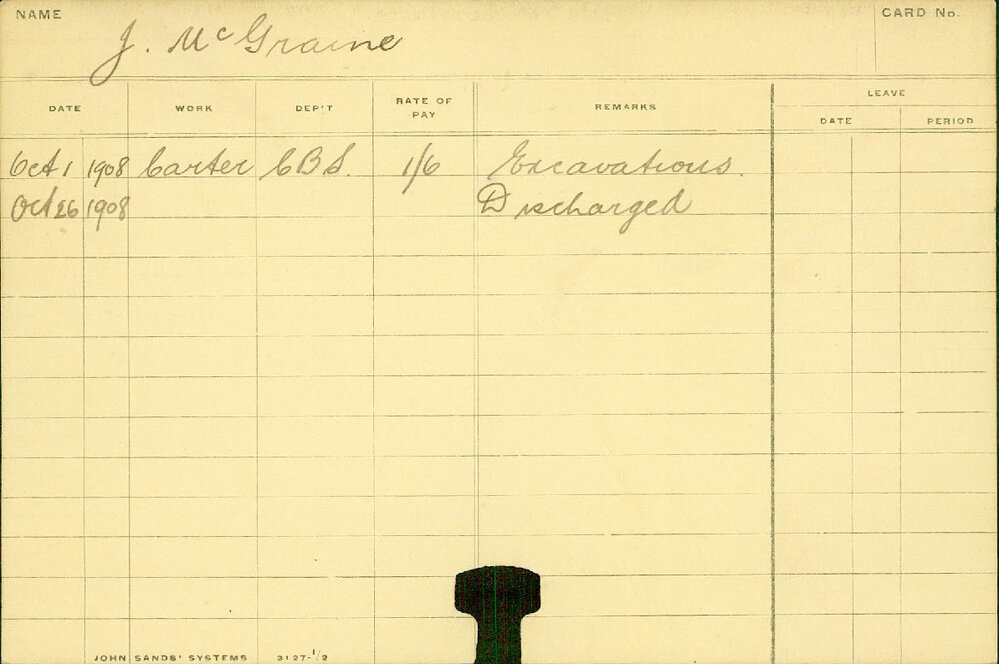 NAME
CARD No.
J. McGraine
DATE WORK DEP'T RATE OF PAY REMARKS LEAVE
DATE PERIOD
Oct 1 1908 Carter CBS. 1/6 Excavations.
Oct 26 1908 Discharged
JOHN SANDS' SYSTEMS 3127-1/2